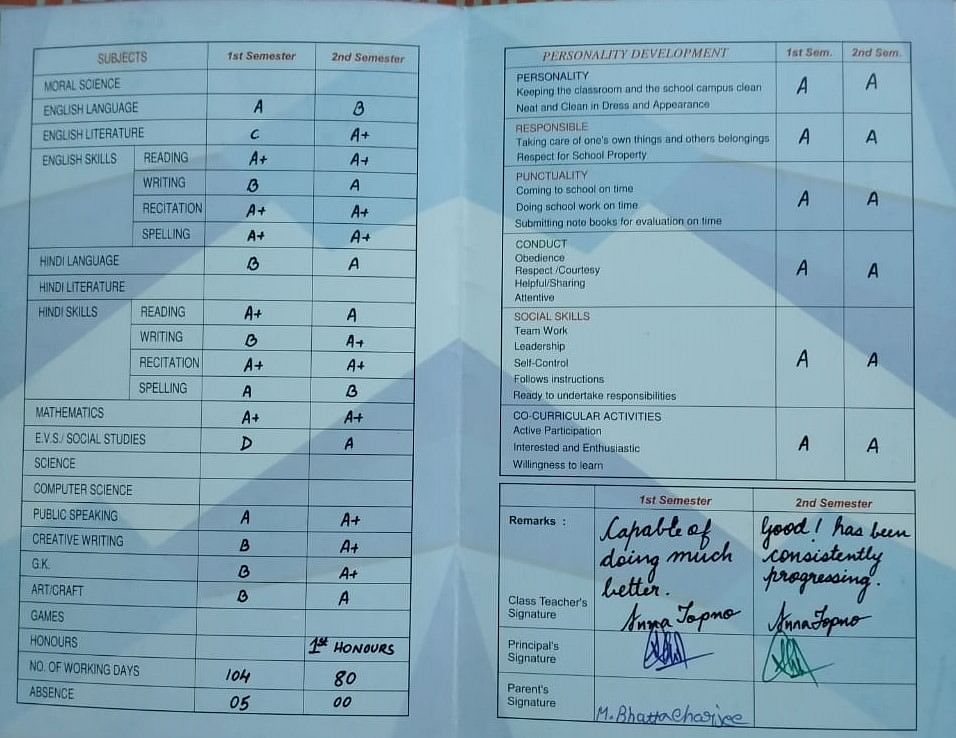 SUBJECTS 1st Semester 2nd Semester
MORAL SCIENCE
ENGLISH LANGUAGE A B
ENGLISH LITERATURE C A+
ENGLISH SKILLS READING A+ A+
WRITING B A
RECITATION A+ A+
SPELLING A+ A+
HINDI LANGUAGE B A
HINDI LITERATURE
HINDI SKILLS READING A+ A
WRITING B A+
RECITATION A+ A+
SPELLING A B
MATHEMATICS A+ A+
E.V.S./ SOCIAL STUDIES D A
SCIENCE
COMPUTER SCIENCE
PUBLIC SPEAKING A A+
CREATIVE WRITING B A+
G.K. B A+
ART/CRAFT B A
GAMES
HONOURS 1st HONOURS
NO. OF WORKING DAYS 104 80
ABSENCE 05 00
PERSONALITY DEVELOPMENT 1st Sem. 2nd Sem.
PERSONALITY
Keeping the classroom and the school campus clean A A
Neat and Clean in Dress and Appearance
RESPONSIBLE
Taking care of one's own things and others belongings A A
Respect for School Property
PUNCTUALITY
Coming to school on time
Doing school work on time A A
Submitting note books for evaluation on time
CONDUCT
Obedience
Respect /Courtesy A A
Helpful/Sharing
Attentive
SOCIAL SKILLS
Team Work
Leadership
Self-Control A A
Follows instructions
Ready to undertake responsibilities
CO-CURRICULAR ACTIVITIES
Active Participation
Interested and Enthusiastic A A
Willingness to learn
1st Semester 2nd Semester
Remarks : Capable of Good! has been
doing much consistently
better. progressing.
Class Teacher's
Signature Anna Topno Anna Topno
Principal's
Signature
Parent's
Signature M. Bhattacharjee